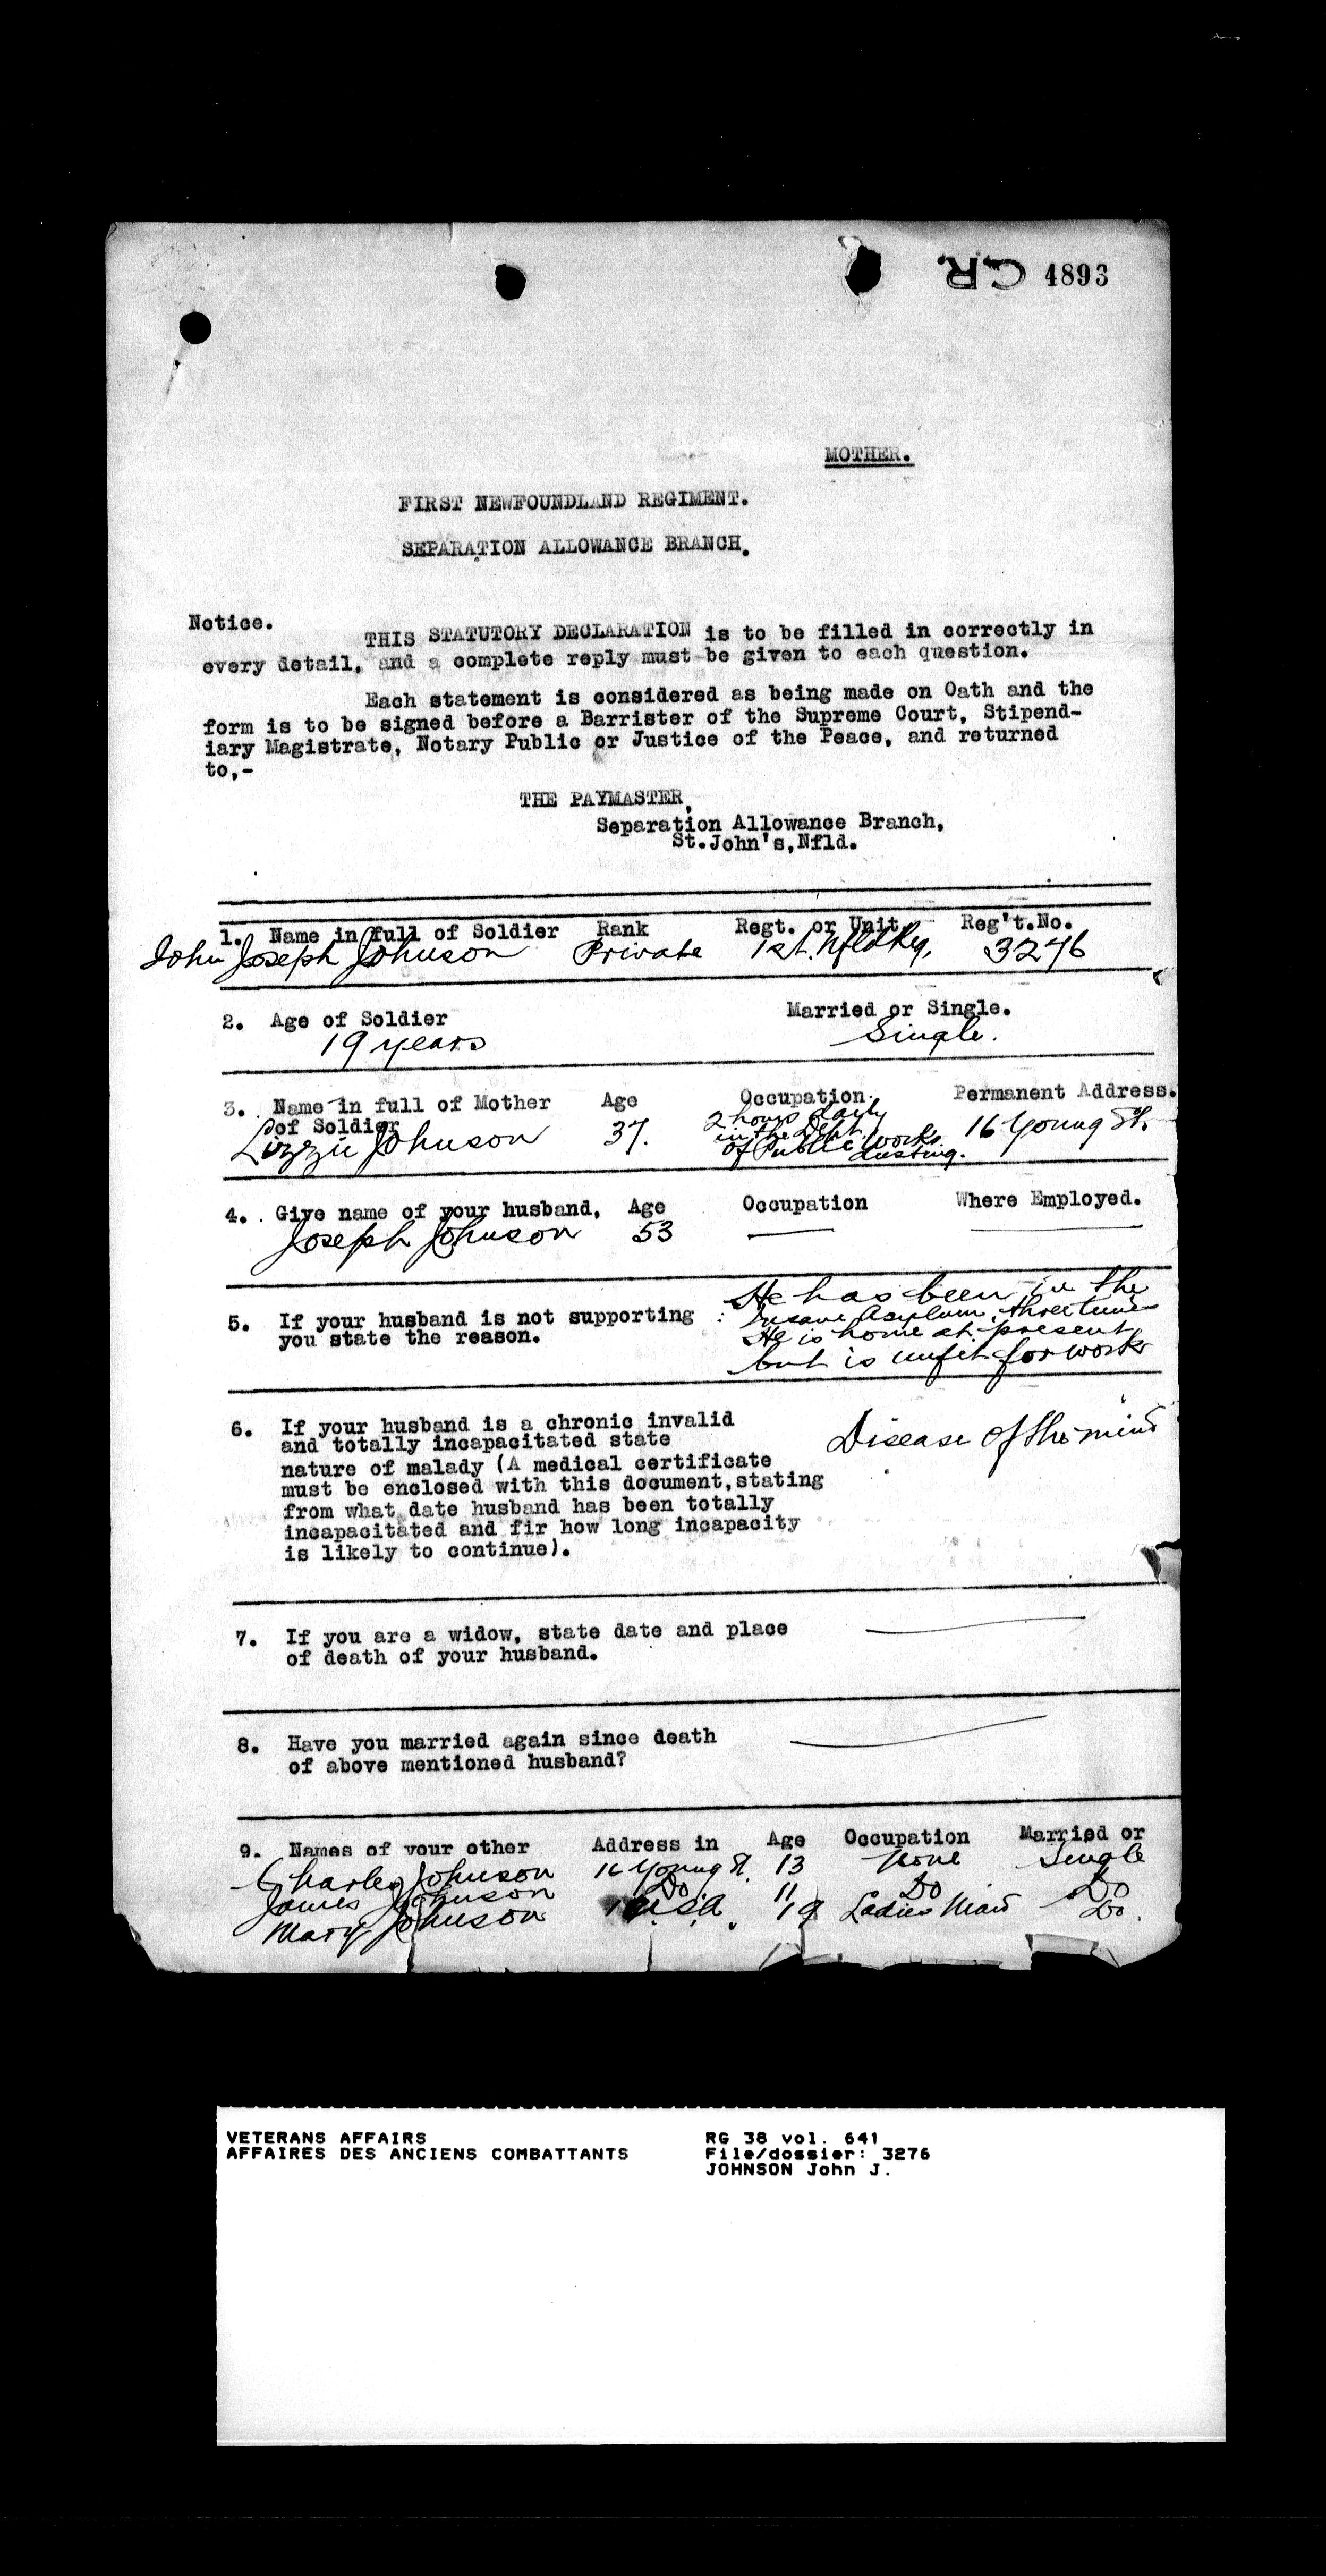 C.R. 4893
MOTHER.
FIRST NEWFOUNDLAND REGIMENT.
SEPARATION ALLOWANCE BRANCH.
Notice.
THIS STATUTORY DECLARATION is to be filled in correctly in
every detail, and a complete reply must be given to each question.
Each statement is considered as being made on Oath and the
form is to be signed before a Barrister of the Supreme Court, Stipend-
iary Magistrate, Notary Public or Justice of the Peace, and returned
to,-
THE PAYMASTER,
Separation Allowance Branch,
St.John's,Nfld.
1. Name in full of Soldier Rank Regt. or Unit Reg't.No.
John Joseph Johnson Private 1st. Nfld Rg. 3276
2. Age of Soldier Married or Single.
19 years Single.
3. Name in full of Mother Age Occupation Permanent Address.
of Soldier
Lizzie Johnson 37. 2 hours daily 16 Young St.
in the Dept.
of Public Works
dusting.
4. Give name of your husband, Age Occupation Where Employed.
Joseph Johnson 53 —— ——
5. If your husband is not supporting :
you state the reason.
He has been in the
Insane Asylum three times
He is home at present
but is unfit for work
6. If your husband is a chronic invalid
and totally incapacitated state
nature of malady (A medical certificate
must be enclosed with this document,stating
from what date husband has been totally
incapacitated and fir how long incapacity
is likely to continue).
Disease of the mind
7. If you are a widow, state date and place
of death of your husband.
8. Have you married again since death
of above mentioned husband?
9. Names of your other Address in Age Occupation Married or
Charles Johnson 16 Young St. 13 None Single
James Johnson Do 11 Do Do
Mary Johnson U.S.A. 19 Ladies Maid Do.
VETERANS AFFAIRS RG 38 vol. 641
AFFAIRES DES ANCIENS COMBATTANTS File/dossier: 3276
JOHNSON John J.